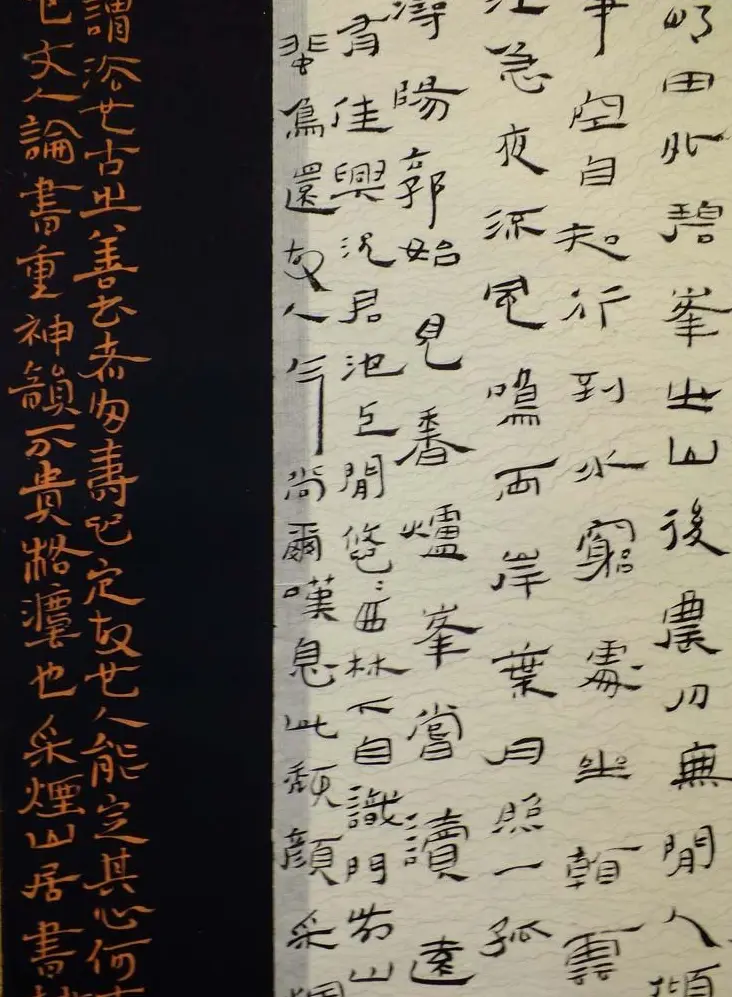 明田外碧峯出山後農月無閒人傾
事空自知行到水窮處坐看雲
江急夜流風鳴兩岸葉月照一孤
潯陽郭始見香爐峯嘗讀遠
有佳興況君池上閒悠〻西林下自識門前山
飛鳥還故人今尚爾嘆息此頹顏采煙
謂俗也古之善书者多壽心定故也人能定其心何
文人論書重神韻不貴格灋也采煙山居書